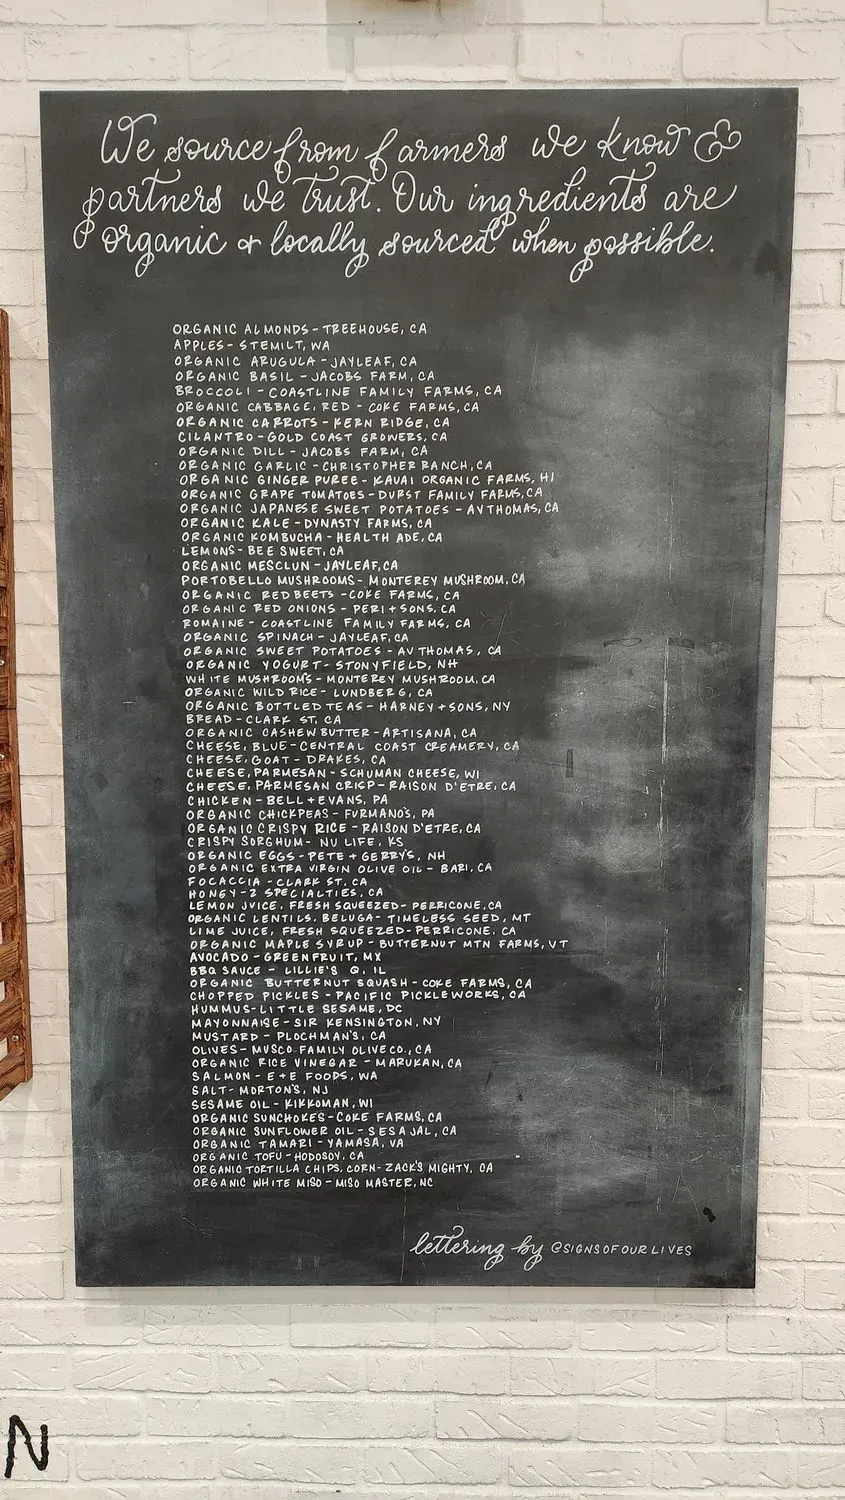 We source from farmers we know &
partners we trust. Our ingredients are
organic & locally sourced when possible.
ORGANIC ALMONDS - TREEHOUSE, CA
APPLES - STEMILT, WA
ORGANIC ARUGULA - JAYLEAF, CA
ORGANIC BASIL - JACOBS FARM, CA
BROCCOLI - COASTLINE FAMILY FARMS, CA
ORGANIC CABBAGE, RED - COKE FARMS, CA
ORGANIC CARROTS - KERN RIDGE, CA
CILANTRO - GOLD COAST GROWERS, CA
ORGANIC DILL - JACOBS FARM, CA
ORGANIC GARLIC - CHRISTOPHER RANCH, CA
ORGANIC GINGER PUREE - KAUAI ORGANIC FARMS, HI
ORGANIC GRAPE TOMATOES - DURST FAMILY FARMS, CA
ORGANIC JAPANESE SWEET POTATOES - AV THOMAS, CA
ORGANIC KALE - DYNASTY FARMS, CA
ORGANIC KOMBUCHA - HEALTH ADE, CA
LEMONS - BEE SWEET, CA
ORGANIC MESCLUN - JAYLEAF, CA
PORTOBELLO MUSHROOMS - MONTEREY MUSHROOM, CA
ORGANIC RED BEETS - COKE FARMS, CA
ORGANIC RED ONIONS - PERI + SONS, CA
ROMAINE - COASTLINE FAMILY FARMS, CA
ORGANIC SPINACH - JAYLEAF, CA
ORGANIC SWEET POTATOES - AV THOMAS, CA
ORGANIC YOGURT - STONYFIELD, NH
WHITE MUSHROOMS - MONTEREY MUSHROOM, CA
ORGANIC WILD RICE - LUNDBERG, CA
ORGANIC BOTTLED TEAS - HARNEY + SONS, NY
BREAD - CLARK ST, CA
ORGANIC CASHEW BUTTER - ARTISANA, CA
CHEESE, BLUE - CENTRAL COAST CREAMERY, CA
CHEESE, GOAT - DRAKES, CA
CHEESE, PARMESAN - SCHUMAN CHEESE, WI
CHEESE, PARMESAN CRISP - RAISON D'ETRE, CA
CHICKEN - BELL + EVANS, PA
ORGANIC CHICKPEAS - FURMANO'S, PA
ORGANIC CRISPY RICE - RAISON D'ETRE, CA
CRISPY SORGHUM - NU LIFE, KS
ORGANIC EGGS - PETE + GERRY'S, NH
ORGANIC EXTRA VIRGIN OLIVE OIL - BARI, CA
FOCACCIA - CLARK ST, CA
HONEY - Z SPECIALTIES, CA
LEMON JUICE, FRESH SQUEEZED - PERRICONE, CA
ORGANIC LENTILS, BELUGA - TIMELESS SEED, MT
LIME JUICE, FRESH SQUEEZED - PERRICONE, CA
ORGANIC MAPLE SYRUP - BUTTERNUT MTN FARMS, VT
AVOCADO - GREENFRUIT, MX
BBQ SAUCE - LILLIE'S Q, IL
ORGANIC BUTTERNUT SQUASH - COKE FARMS, CA
CHOPPED PICKLES - PACIFIC PICKLEWORKS, CA
HUMMUS - LITTLE SESAME, DC
MAYONNAISE - SIR KENSINGTON, NY
MUSTARD - PLOCHMAN'S, CA
OLIVES - MUSCO FAMILY OLIVE CO., CA
ORGANIC RICE VINEGAR - MARUKAN, CA
SALMON - E + E FOODS, WA
SALT - MORTON'S, NJ
SESAME OIL - KIKKOMAN, WI
ORGANIC SUNCHOKES - COKE FARMS, CA
ORGANIC SUNFLOWER OIL - SESAJAL, CA
ORGANIC TAMARI - YAMASA, VA
ORGANIC TOFU - HODOSOY, CA
ORGANIC TORTILLA CHIPS, CORN - ZACK'S MIGHTY, CA
ORGANIC WHITE MISO - MISO MASTER, NC
lettering by @SIGNSOFOURLIVES
N